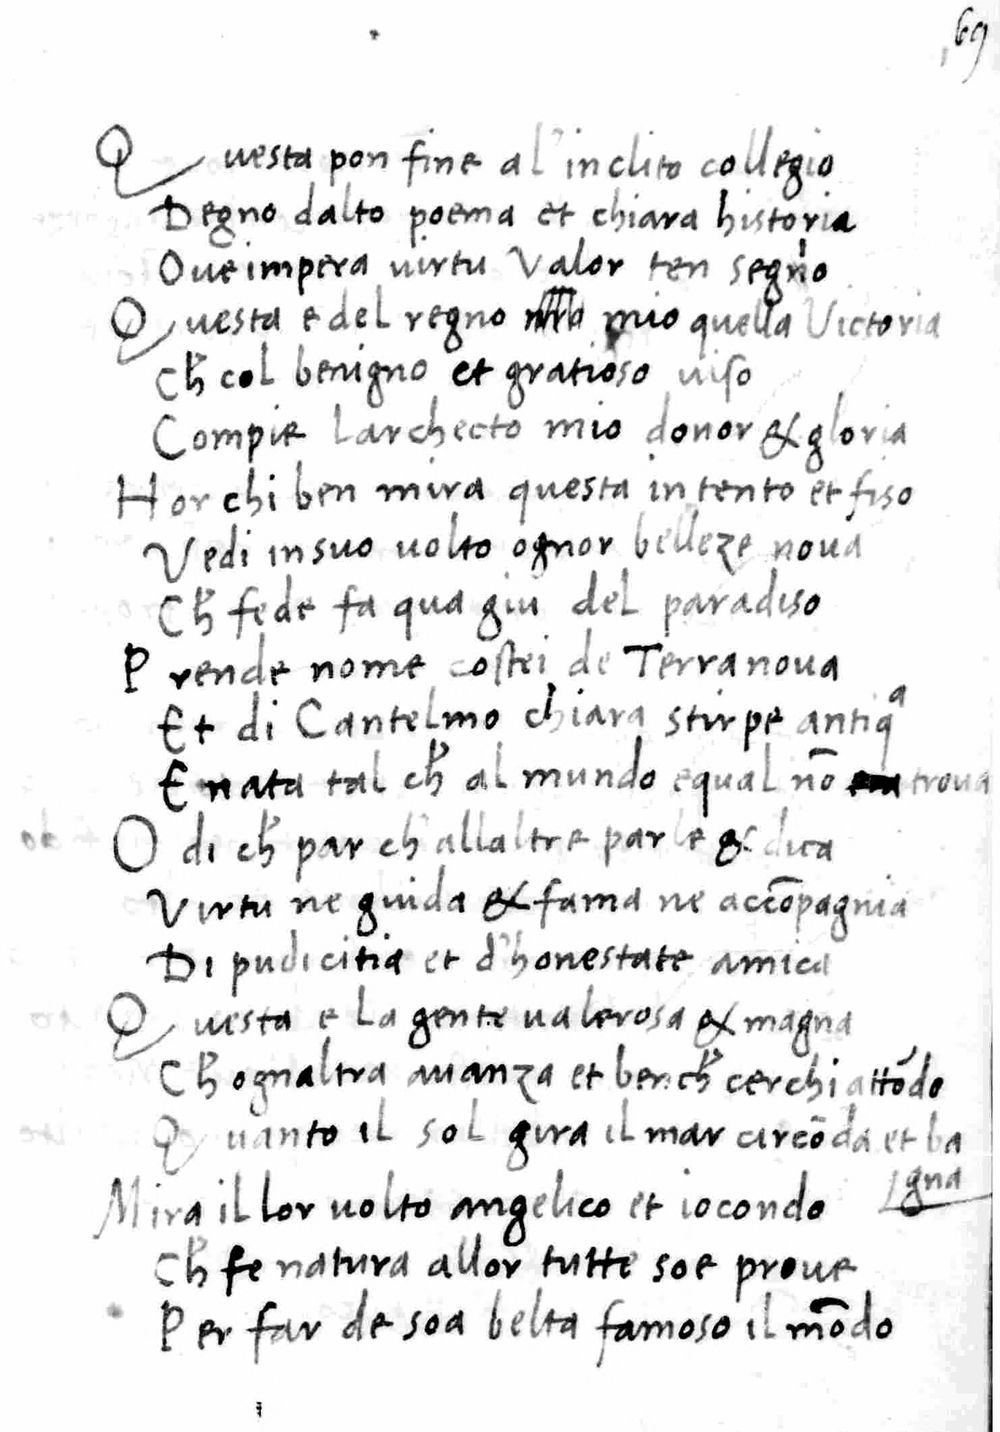 69
Questa pon fine al'inclito collegio
Degno dalto poema et chiara historia
Oue impera uirtu Valor ten segno
Questa e del regno mio quella Victoria
Ch̓ col benigno et gratioso uiso
Compie Larchecto mio donor & gloria
Hor chi ben mira questa intento et fiso
Vedi in suo uolto ognor belleze noua
Ch̓ fede fa qua giu del paradiso
Prende nome costei de Terranoua
Et di Cantelmo chiara stirpe antiqᵃ
E nata tal ch̓ al mundo equal nō troua
O di ch̓ par ch'allaltre parle & dica
Virtu ne guida & fama ne accōpagnia
Di pudicitia et d'honestate amica
Questa e La gente ualerosa & magna
Ch̓ ognaltra auanza et bench̓ cerchi attōdo
Quanto il sol gira il mar circōda et ba
gna
Mira il lor uolto angelico et iocondo
Ch̓ fe natura allor tutte soe proue
Per far de soa belta famoso il mōdo